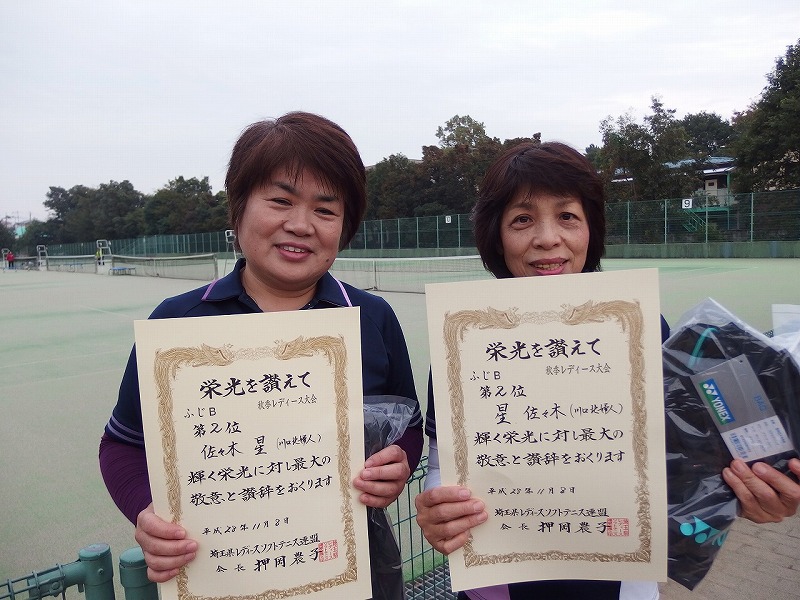 栄光を讃えて
秋季レディース大会
ふじB
第2位
佐々木 星 (川口北婦人)
輝く栄光に対し最大の
敬意と讃辞をおくります
平成28年11月8日
埼玉県レディースソフトテニス連盟
会長 押岡農子
栄光を讃えて
秋季レディース大会
ふじB
第2位
星 佐々木 (川口北婦人)
輝く栄光に対し最大の
敬意と讃辞をおくります
平成28年11月8日
埼玉県レディースソフトテニス連盟
会長 押岡農子
YONEX
9